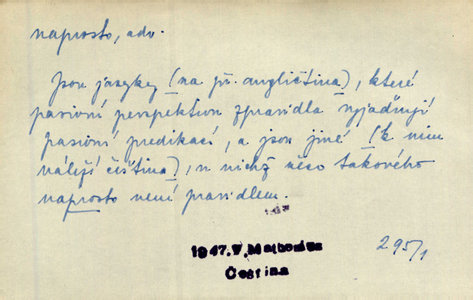 naprosto, adv.
Jsou jazyky (na př. angličtina), které
pasivní perspektivu zpravidla vyjadřují
pasivní predikací, a jsou jiné (k nim
náleží čeština), v nichž něco takového
naprosto není pravidlem.
1947.V.Mathesius
Čeština
295/1